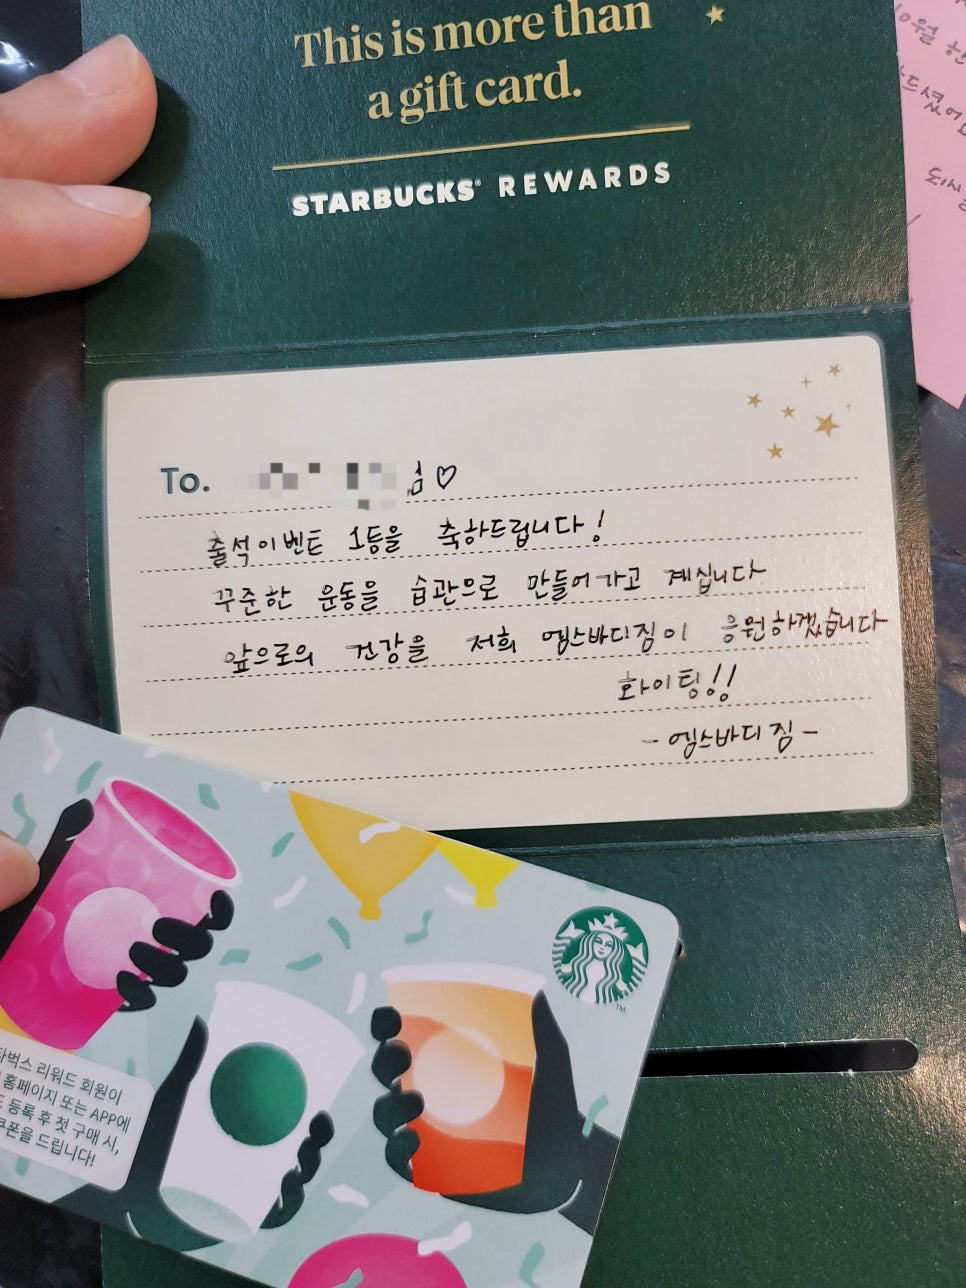 This is more than
a gift card.
STARBUCKS® REWARDS
To. 님♡
출석이벤트 1등을 축하드립니다!
꾸준한 운동을 습관으로 만들어가고 계십니다
앞으로의 건강을 저희 엠스바디짐이 응원하겠습니다
화이팅!!
-엠스바디짐-
타벅스 리워드 회원이
홈페이지 또는 APP에
등록 후 첫 구매 시,
쿠폰을 드립니다!
TM